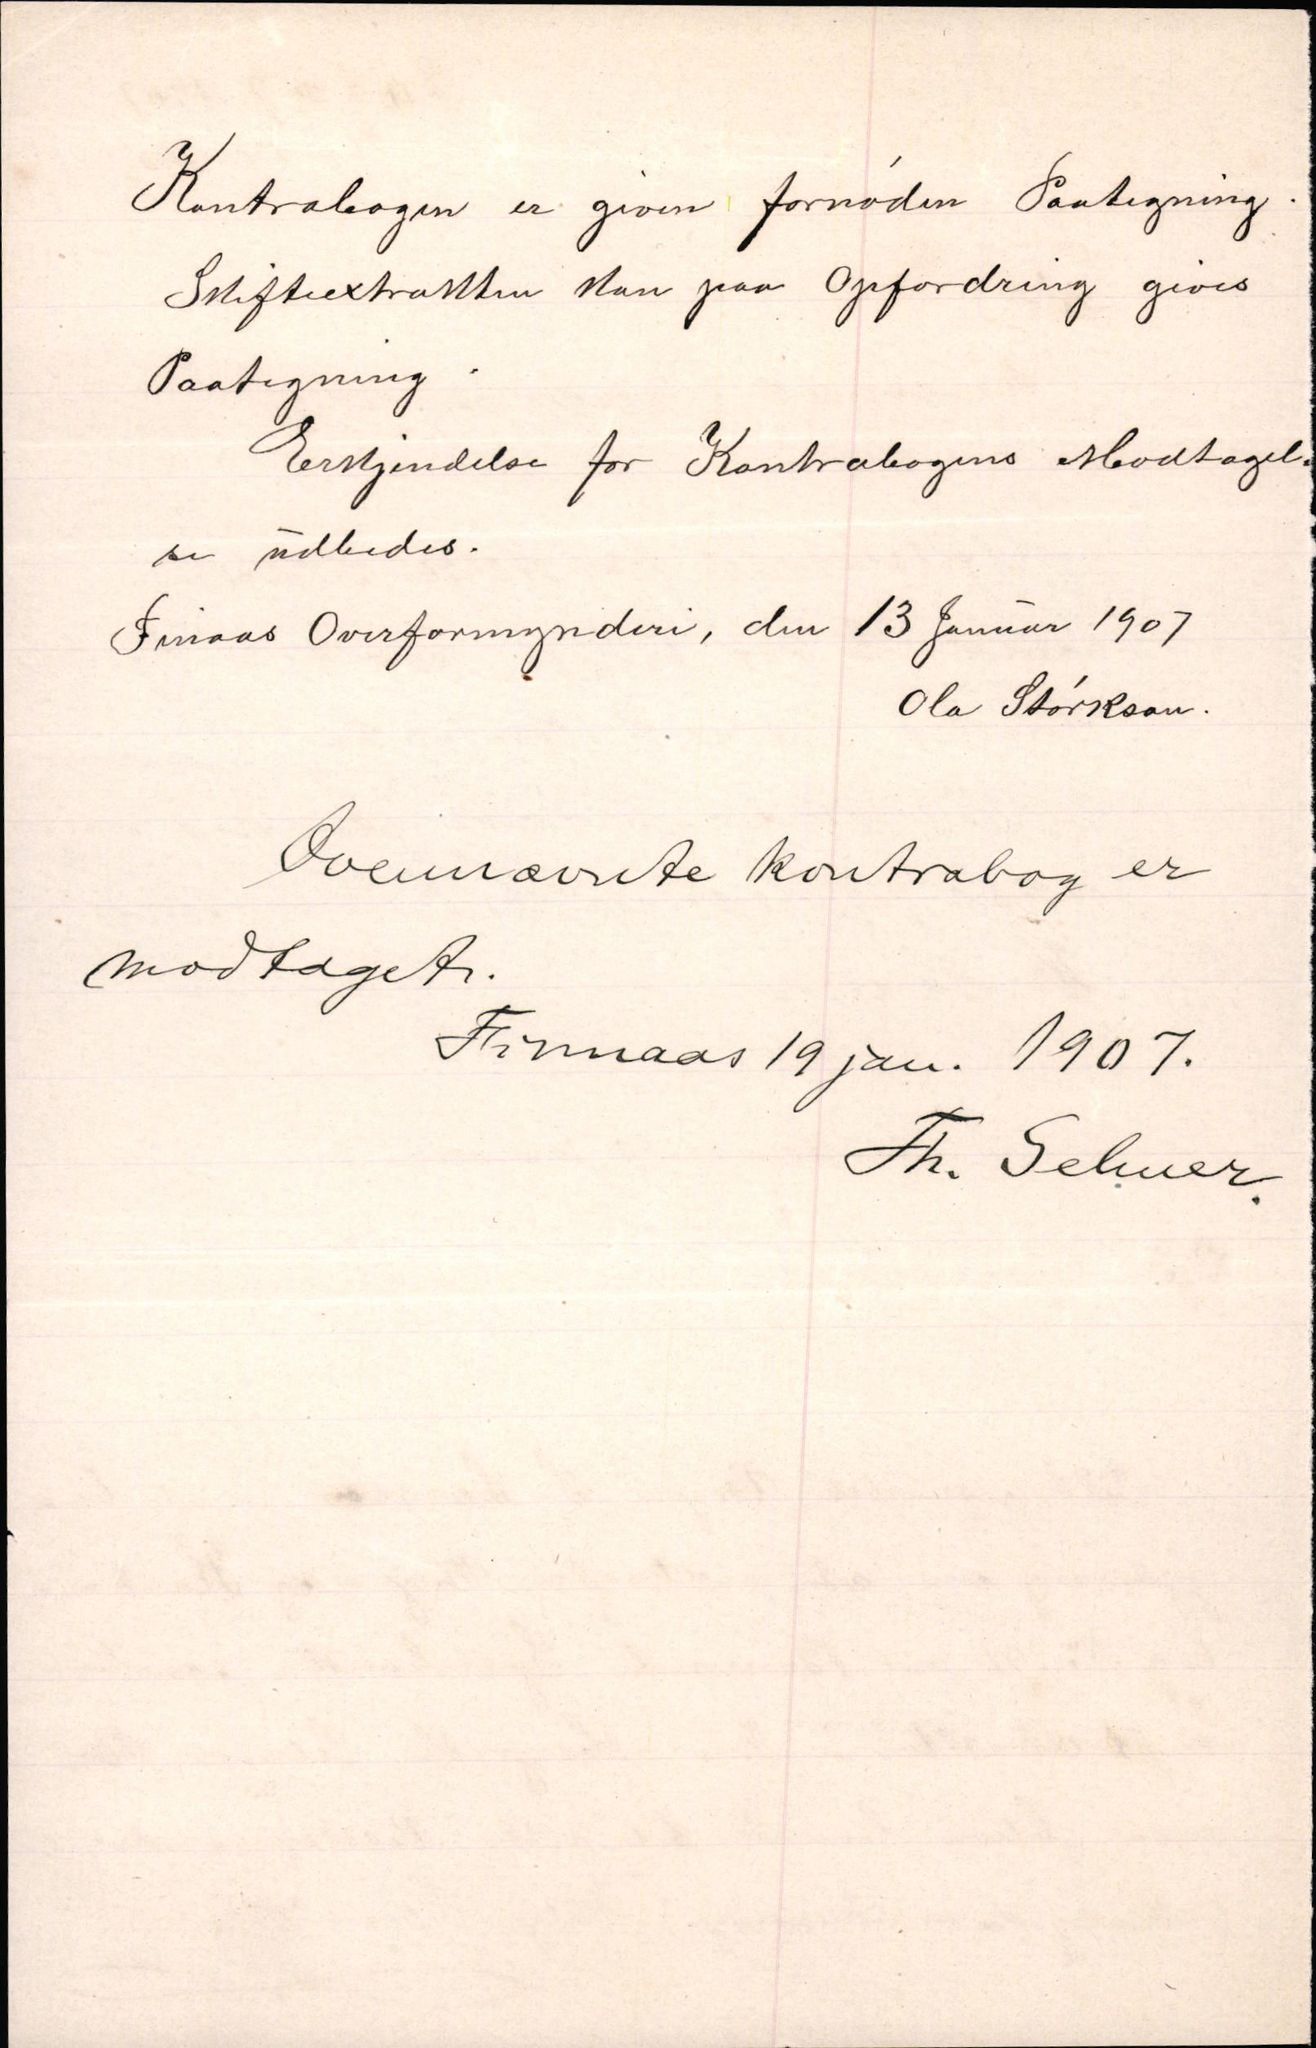 Kontrabogen er given fornóden Paategning.
Skifteextrakten kan paa Opfordring gives
Paategning.
Erkjendelse for Kontrabogens Modtagel-
se udbedes.
Finaas Overformynderi, den 13 Januar 1907
Ola Stórkson.
Ovennævnte kontrabog er
modtaget.
Finnaas 19 jan. 1907.
Th. Selmer.